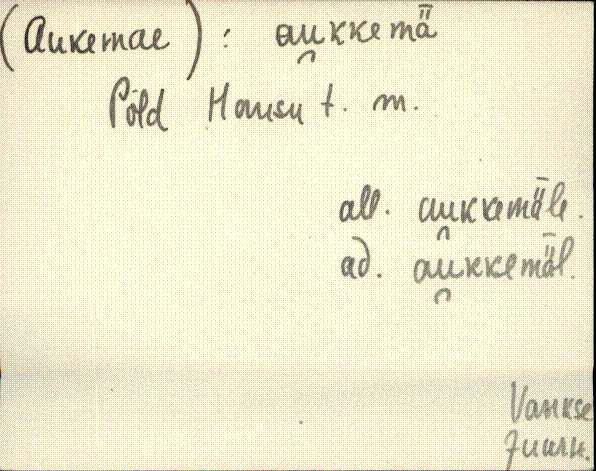 (Aukemäe) : au̯kkemǟ
Põld Hansu t. m.
all. au̯kkemǟle.
ad. au̯kkemǟl.
Vahkse
Juuru.